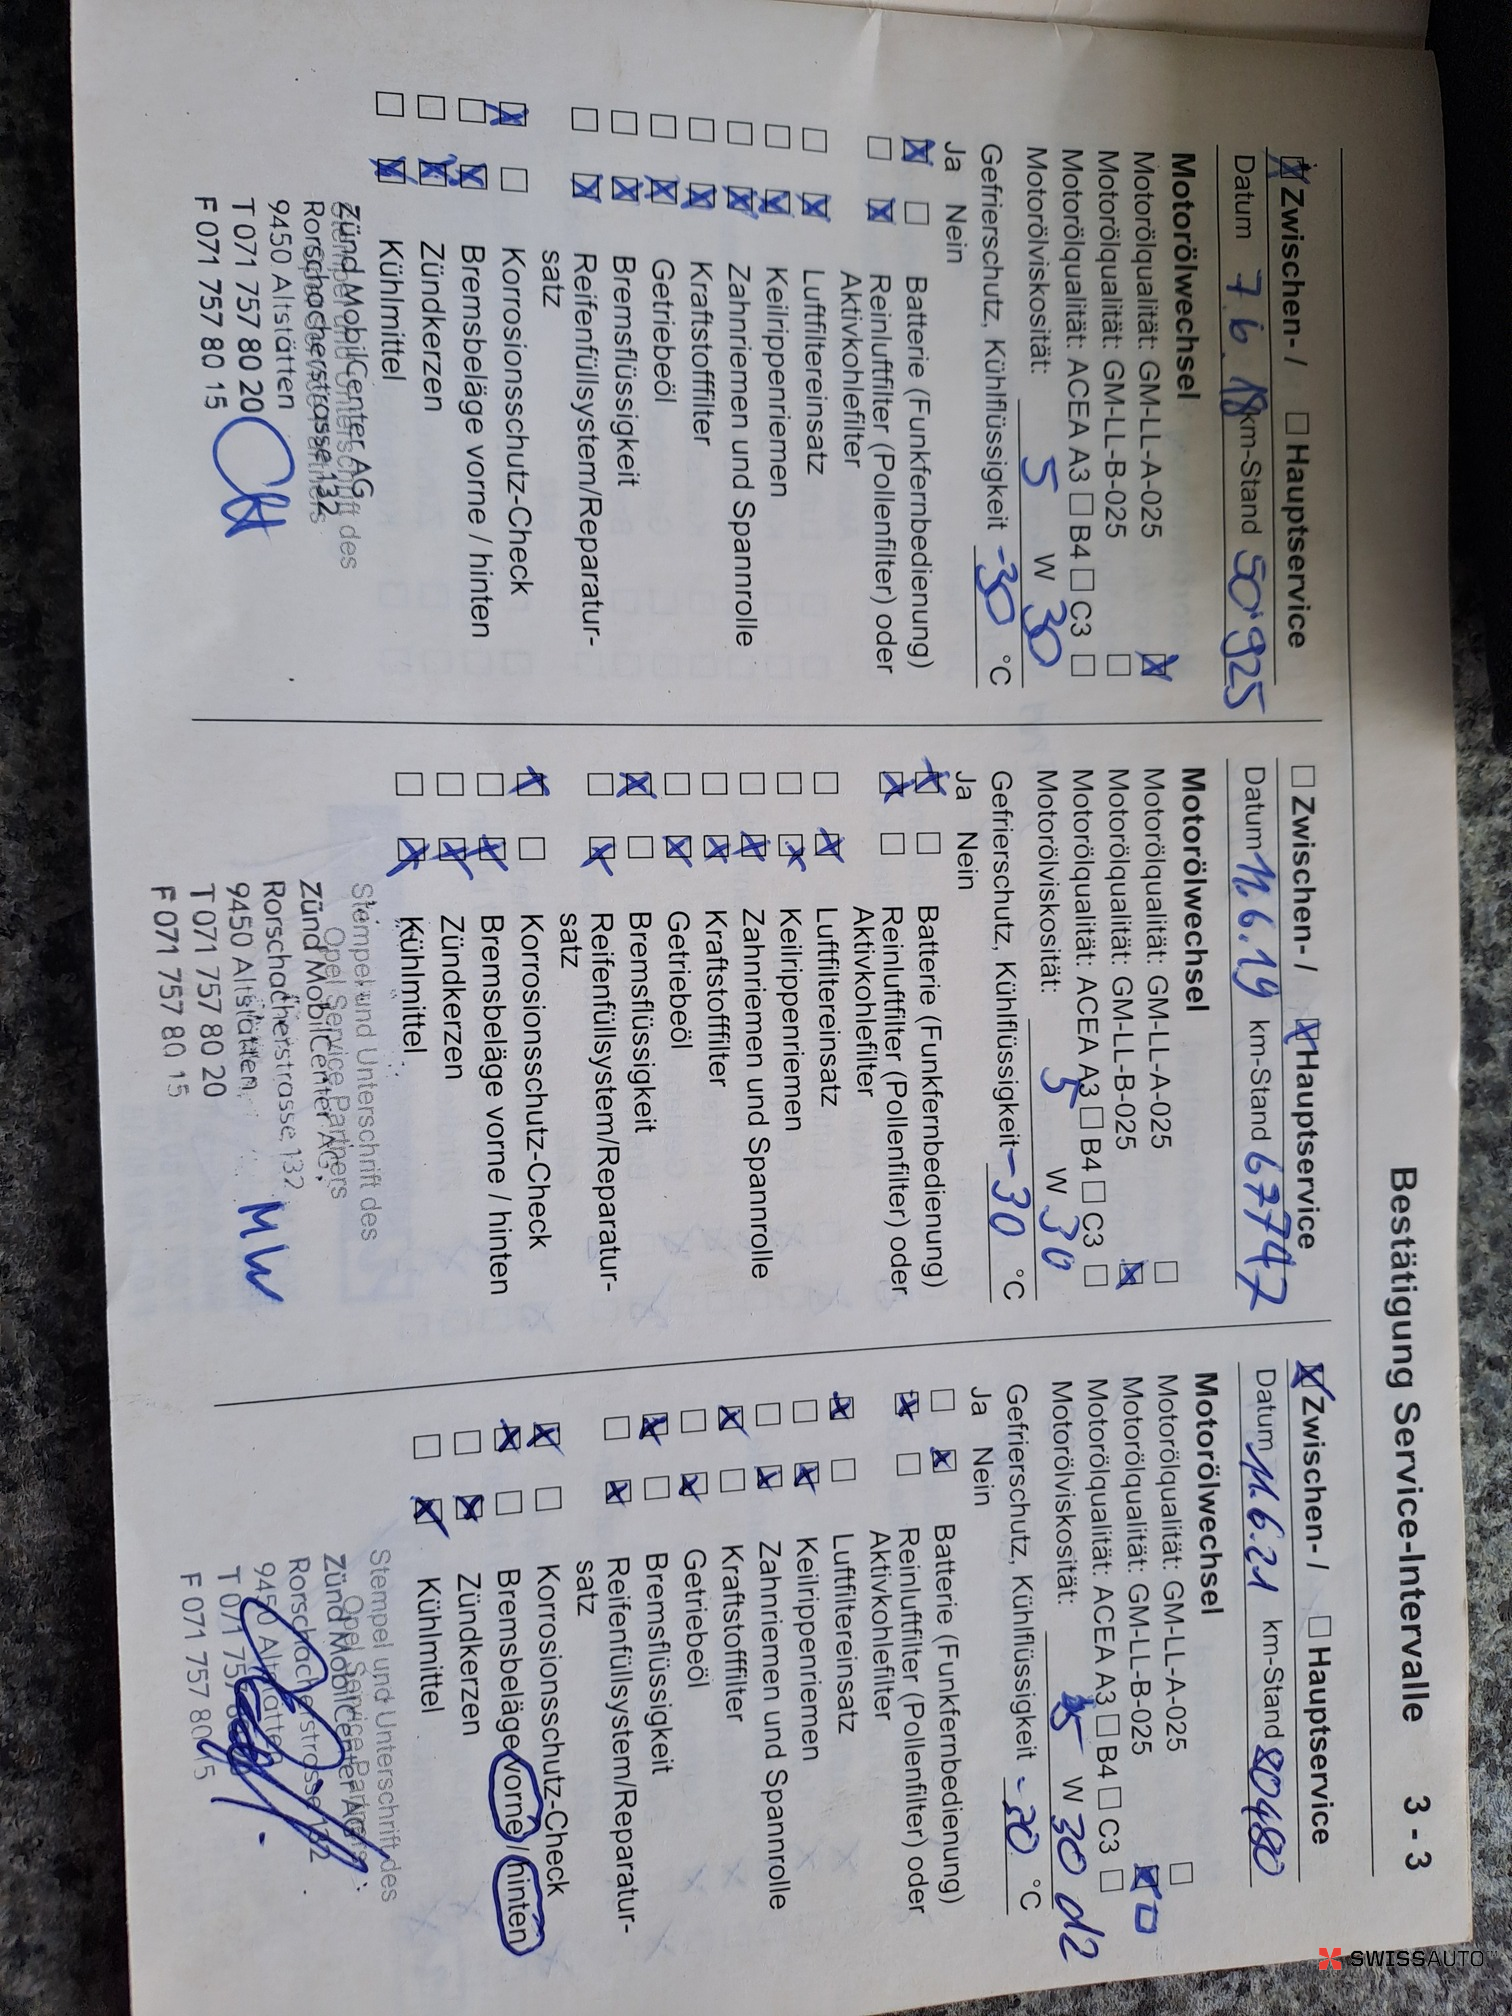 Bestätigung Service-Intervalle 3 - 3
Zwischen- / Hauptservice
Datum 7.6.18 km-Stand 50'925
Motorölwechsel
Motorölqualität: GM-LL-A-025
Motorölqualität: GM-LL-B-025
Motorölqualität: ACEA A3 B4 C3
Motorölviskosität: 5 W 30
Gefrierschutz, Kühlflüssigkeit -30 °C
Ja Nein
Batterie (Funkfernbedienung)
Reinluftfilter (Pollenfilter) oder
Aktivkohlefilter
Luftfiltereinsatz
Keilrippenriemen
Zahnriemen und Spannrolle
Kraftstofffilter
Getriebeöl
Bremsflüssigkeit
Reifenfüllsystem/Reparatur-
satz
Korrosionsschutz-Check
Bremsbeläge vorne / hinten
Zündkerzen
Kühlmittel
Zünd MobilCenter AG
Rorschacherstrasse 132
9450 Altstätten
T 071 757 80 20
F 071 757 80 15
Zwischen- / Hauptservice
Datum 11.6.19 km-Stand 67747
Motorölwechsel
Motorölqualität: GM-LL-A-025
Motorölqualität: GM-LL-B-025
Motorölqualität: ACEA A3 B4 C3
Motorölviskosität: 5 W 30
Gefrierschutz, Kühlflüssigkeit -30 °C
Ja Nein
Batterie (Funkfernbedienung)
Reinluftfilter (Pollenfilter) oder
Aktivkohlefilter
Luftfiltereinsatz
Keilrippenriemen
Zahnriemen und Spannrolle
Kraftstofffilter
Getriebeöl
Bremsflüssigkeit
Reifenfüllsystem/Reparatur-
satz
Korrosionsschutz-Check
Bremsbeläge vorne / hinten
Zündkerzen
Kühlmittel
Stempel und Unterschrift des
Opel Service Partners
Zünd MobilCenter AG
Rorschacherstrasse 132
9450 Altstätten
T 071 757 80 20
F 071 757 80 15
MW
Zwischen- / Hauptservice
Datum 11.6.21 km-Stand 80480
Motorölwechsel
Motorölqualität: GM-LL-A-025
Motorölqualität: GM-LL-B-025
Motorölqualität: ACEA A3 B4 C3
Motorölviskosität: 5 W 30 d2
Gefrierschutz, Kühlflüssigkeit °C
Ja Nein
Batterie (Funkfernbedienung)
Reinluftfilter (Pollenfilter) oder
Aktivkohlefilter
Luftfiltereinsatz
Keilrippenriemen
Zahnriemen und Spannrolle
Kraftstofffilter
Getriebeöl
Bremsflüssigkeit
Reifenfüllsystem/Reparatur-
satz
Korrosionsschutz-Check
Bremsbeläge vorne / hinten
Zündkerzen
Kühlmittel
Stempel und Unterschrift des
Opel Service Partners
Zünd MobilCenter AG
Rorschacherstrasse 132
9450 Altstätten
T 071 757
F 071 757 80 15
SWISSAUTO